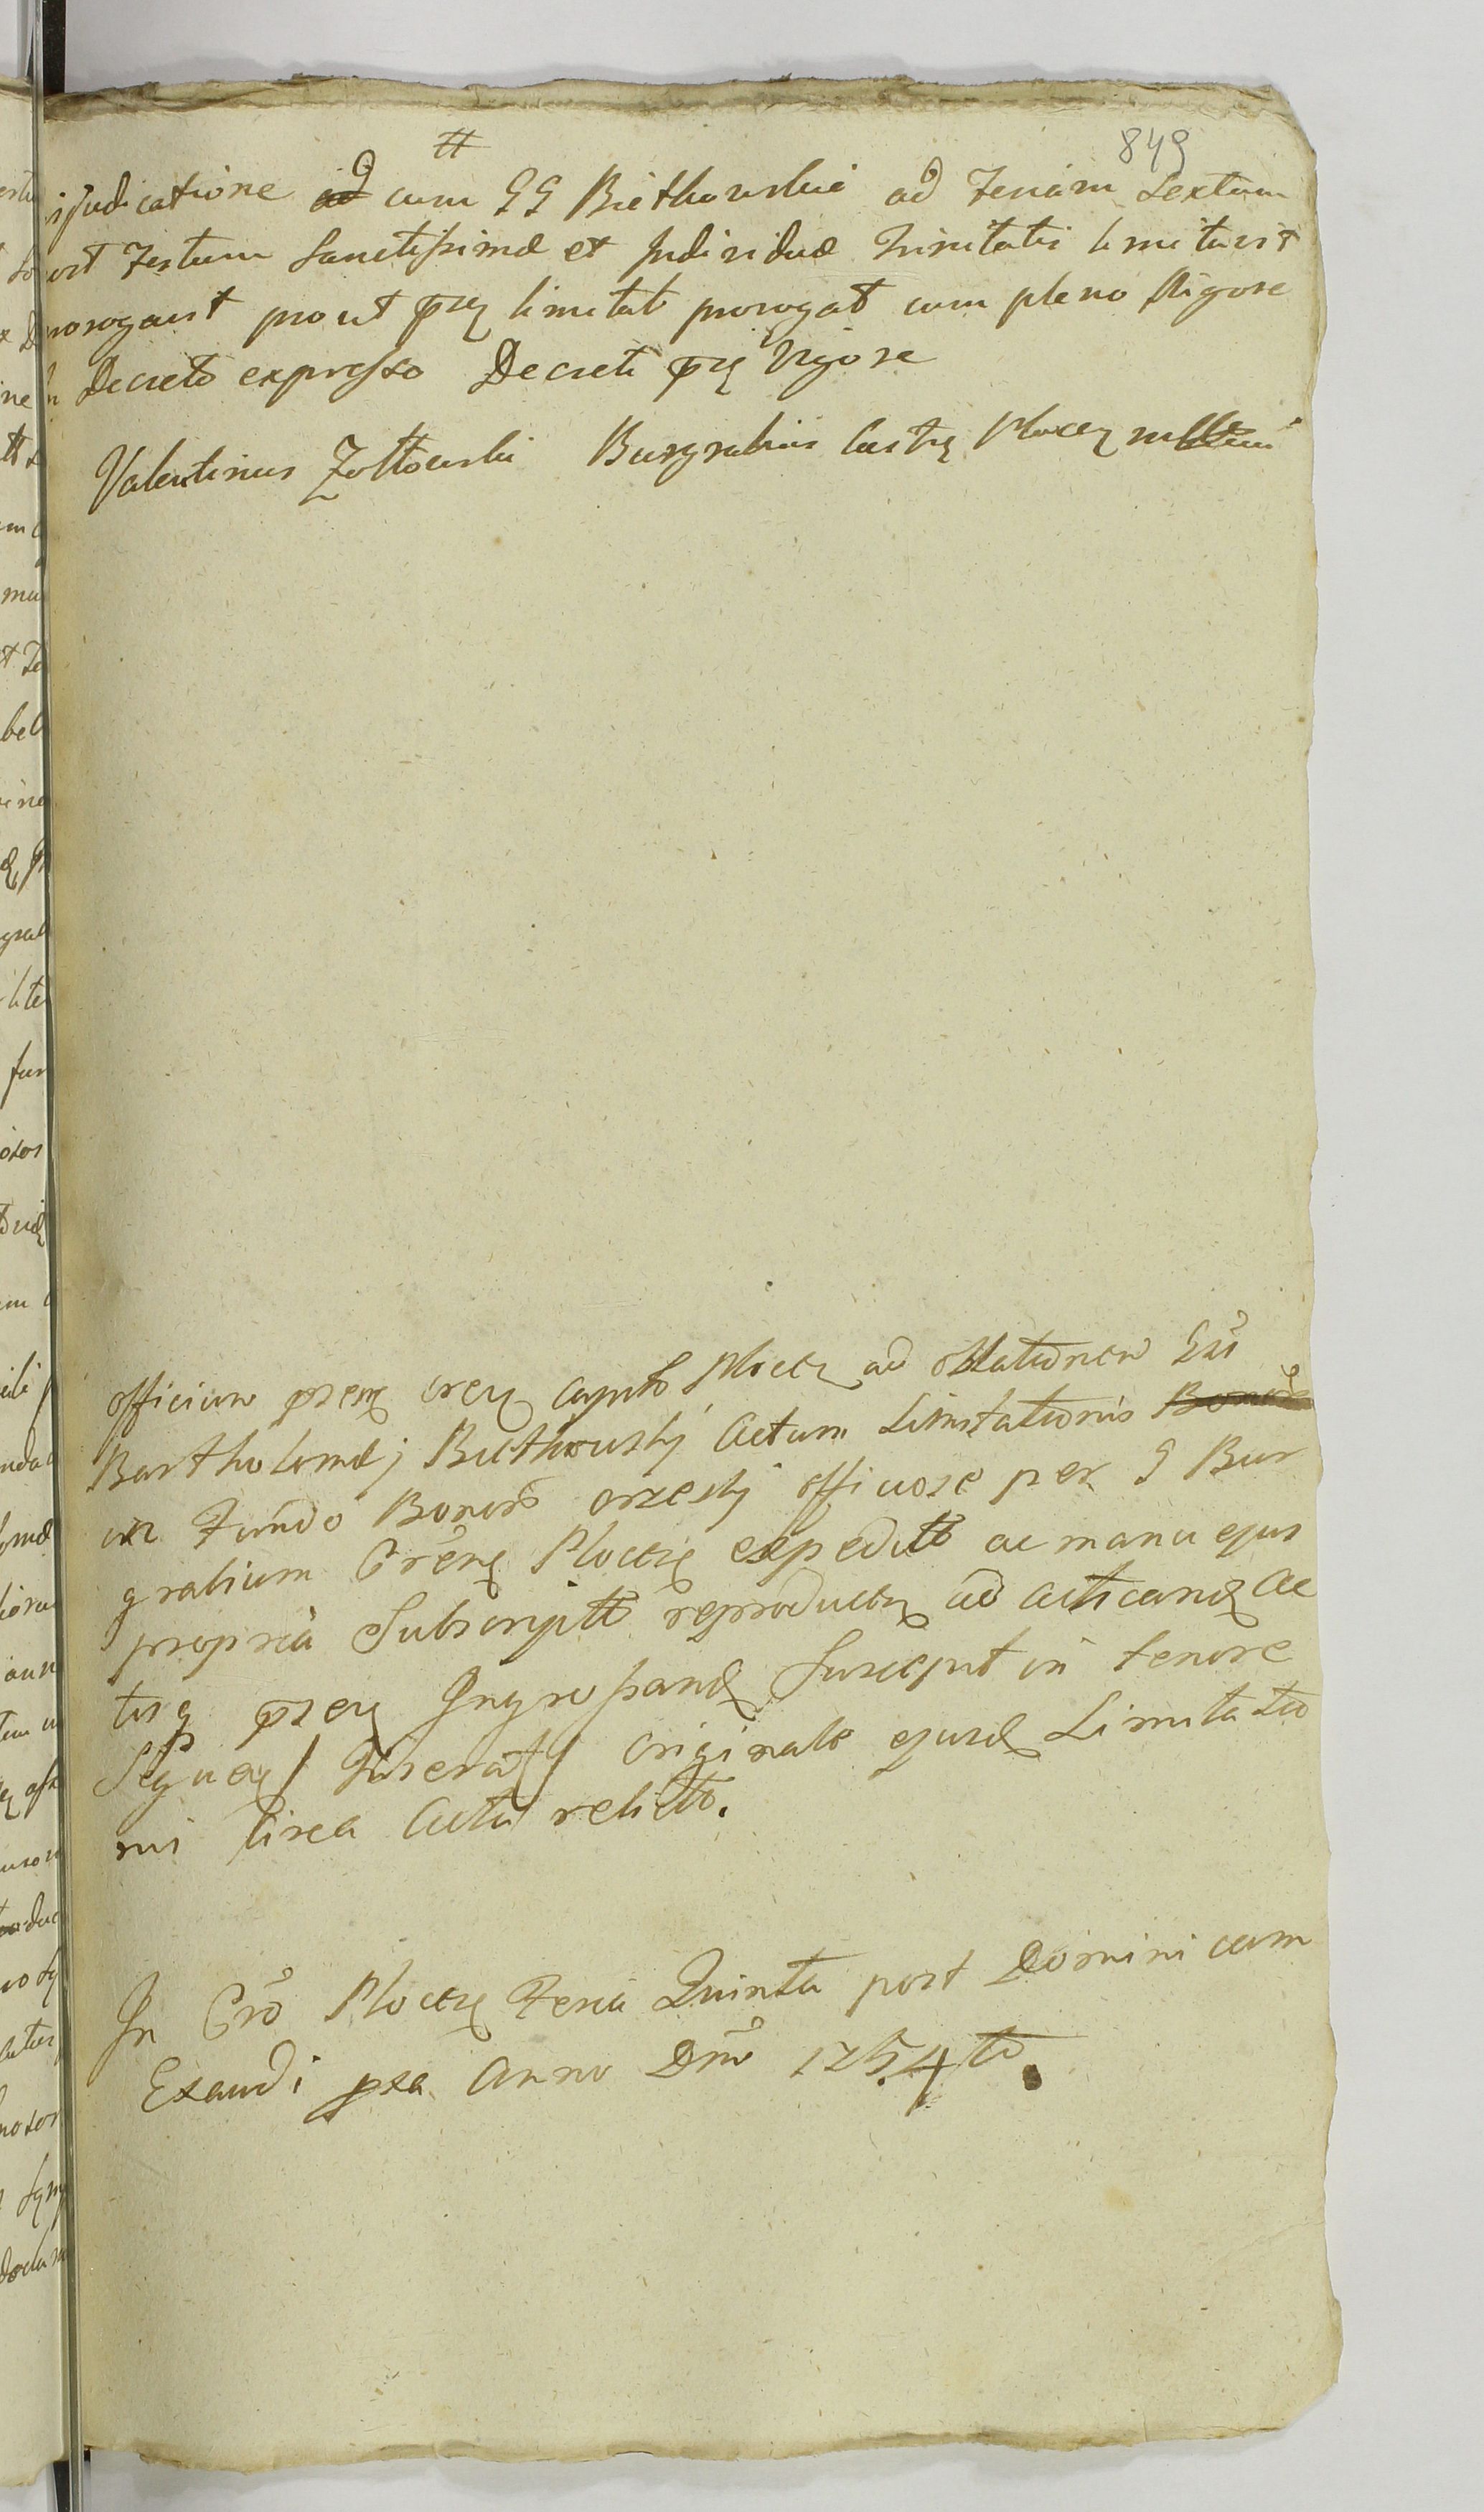 849
judicatione cum GG Biethowskie ad Feriam Sextam
post Festum Sanctissimæ et Individuæ Trinitatis limitavit
prorogavit prout pñtʒ limitat prorogat cum pleno Rigore
Decreto expresso Decreti pñtʒ Vigore
Valentinus Zołtowski Burgrabius Castrʒ Plocenʒ
Officium pñtʒ Crʒ Capit̃ Plocenʒ ad oblationem Gʒi
Bartholomæj Biethowskj Actum Limitationis
in Fundo Bonorũ orzeskj officiose per G Bur
grabium Cr̃enʒ Plocenʒ expeditũ ac manu ejus
propria Subscriptũ reproductʒ ad acticandʒ Ac
tisqʒ pñtʒ Ingrossandʒ Suscepit in tenore
Sequenʒ / Inserat̃ / originale ejusdʒ Limitatio
nis circa Acta relicto.
In Crõ Plocenʒ Feria Quinta post Dominicam
Exaudi pxa Anno Dñi 1754to